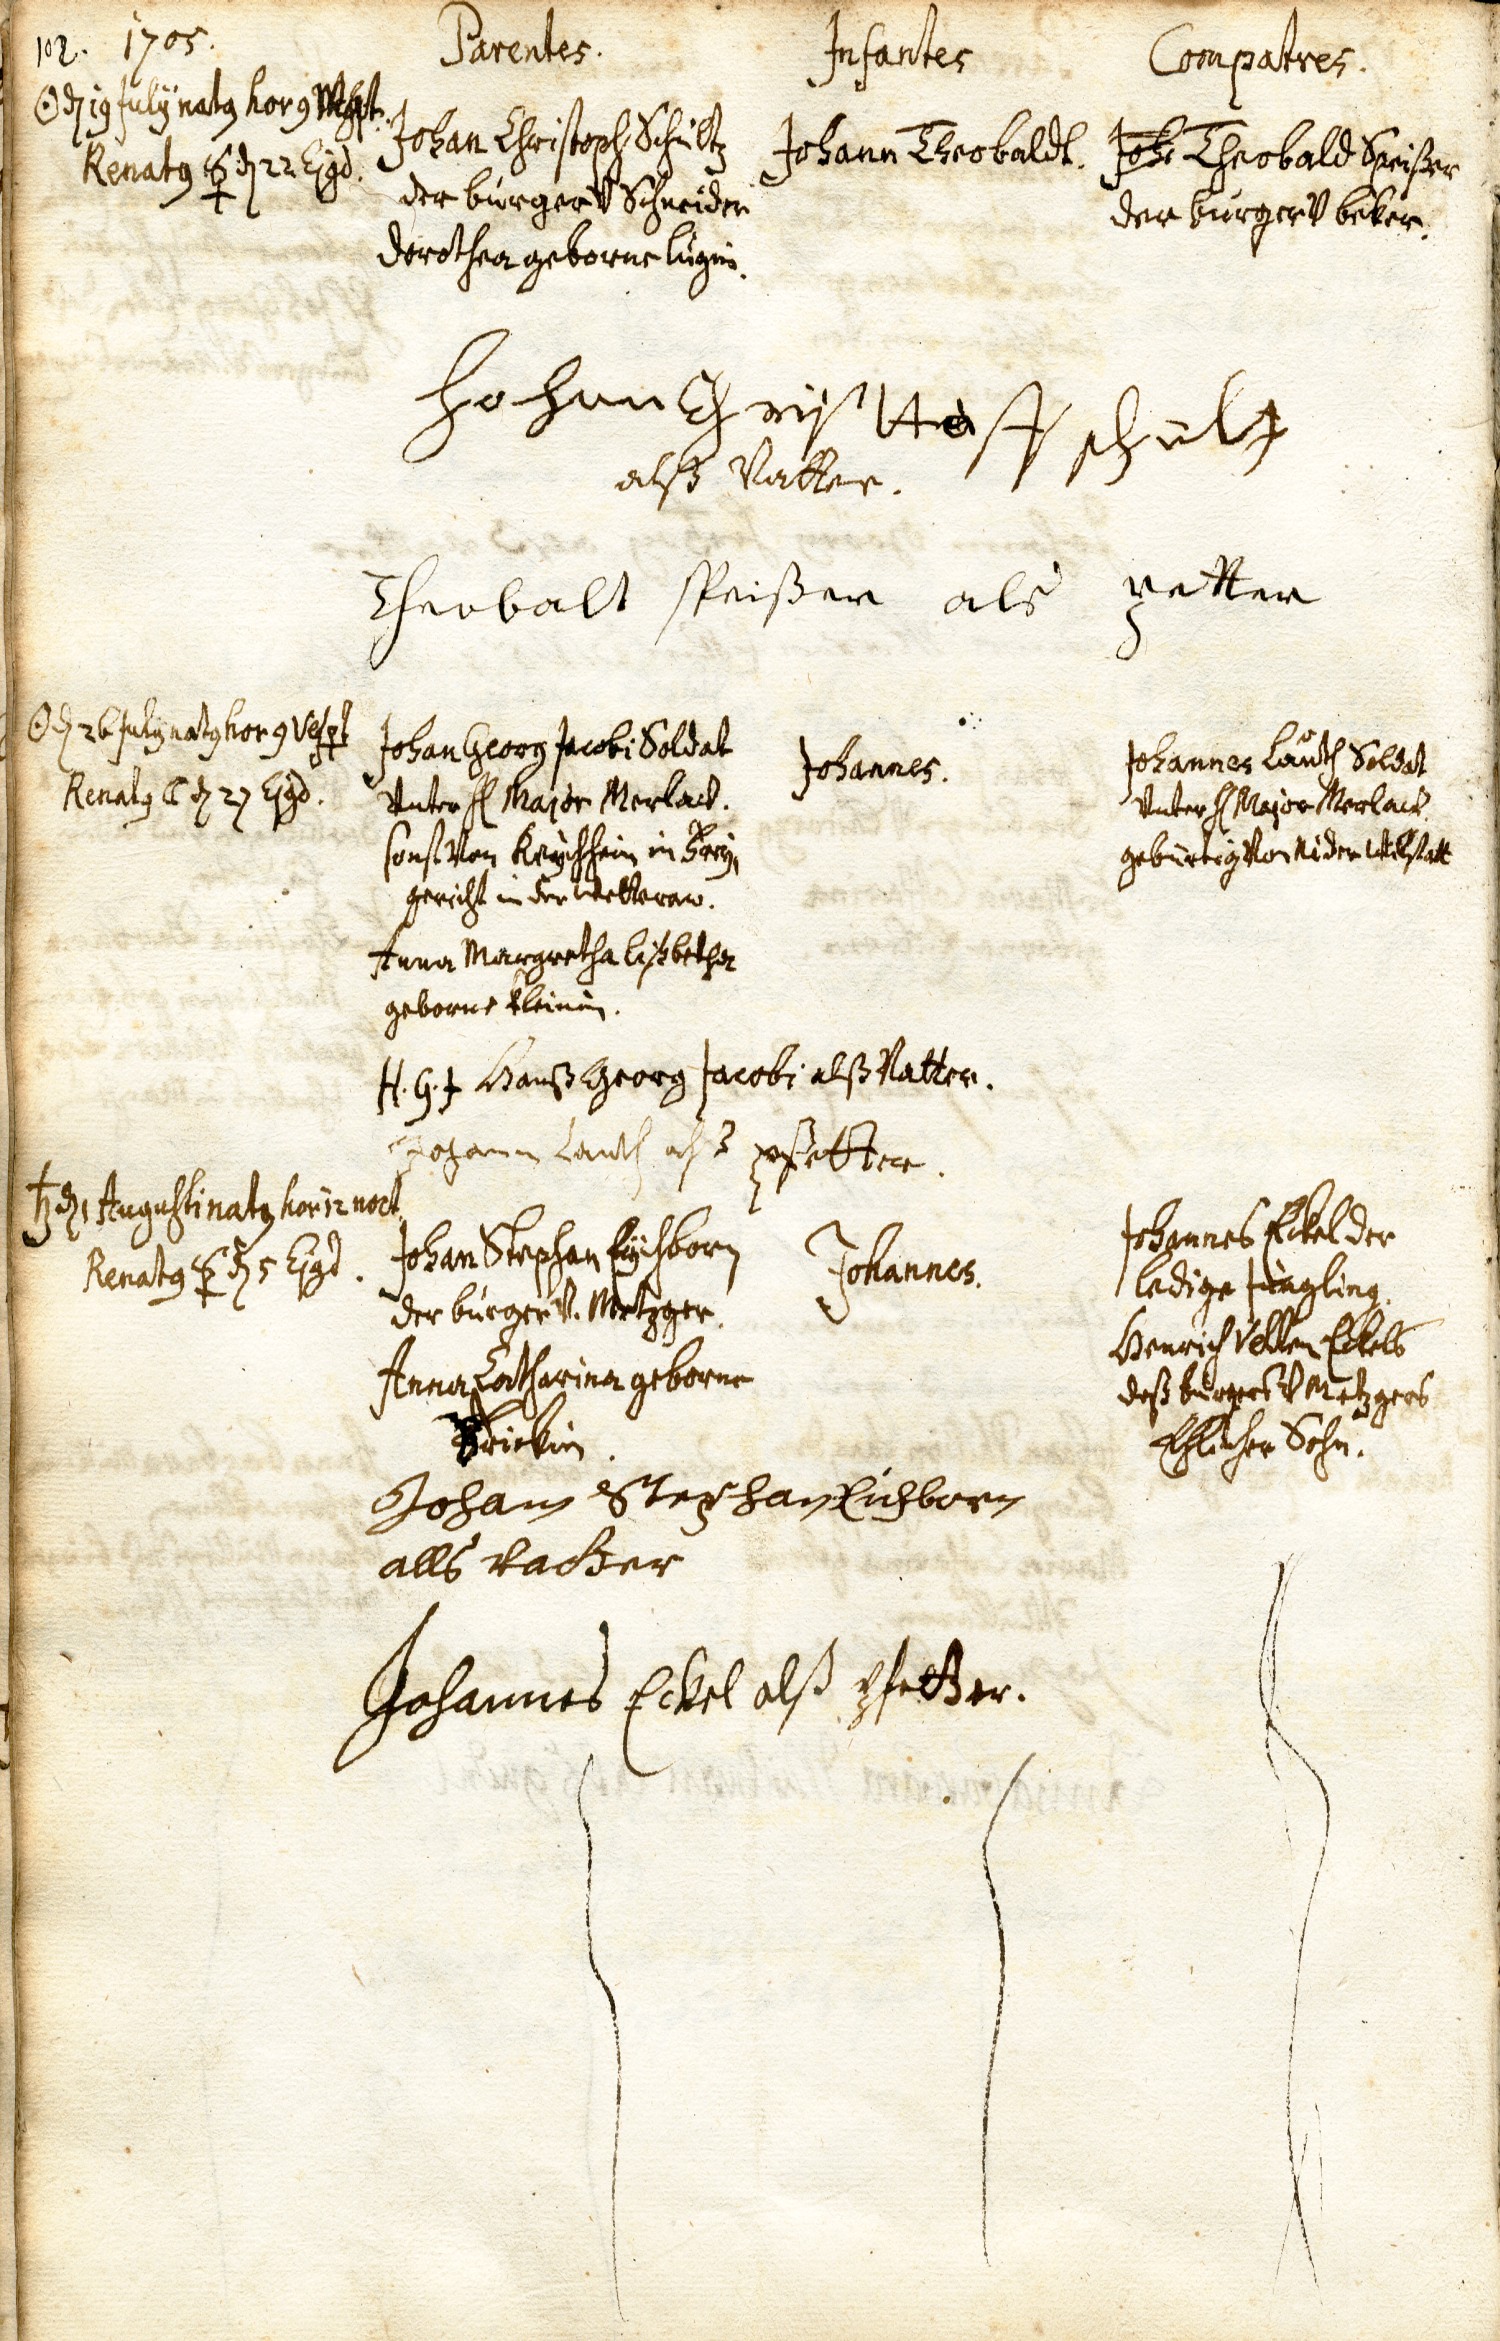 102. 1705.
Parentes.
Infantes
Compatres.
☉ d 19 July natg hor 9 Vespt.
Renatg ☿ d 22 Ejgd.
Johan Christoph Schultz
der burger V Schneider
dorothea geborne lugin.
Johann Theobaldt.
Joh: Theobald Speißer
der burger V beker.
Johan Christtoff schultz
alß Vatter.
Theobalt speißer als petter
☉ d 26 July natg hor 9 Vespt
Renatg ☾ d 27 Ejgd.
Johan Georg Jacobi Soldat
Unter H Major Merlack.
sonst Von in frey
gericht in der Wetteraw.
Anna Margretha Lißbetha
geborne kleinin.
Johannes.
Johannes Lauth Soldat
Unter H Major Merlack
geburtig Von Nider
H.G.J Hanß Georg Jacobi alß Vatter.
Johann Lauth alß pfetter.
♄ d 1 Augusti natg hor 12 noct.
Renatg ☿ d 5 Ejgd.
Johan Stephan Eychborn
der burger V. Metzger.
Anna Catharina geborne
Johannes.
Johannes Eckel der
ledige Jungling.
Henrich Velten Eckels
deß burgers V Metzgers
Ehlicher Sohn.
Johann Stephan Eichborn
alls vatter
Johannes Eckel alß pfetter.